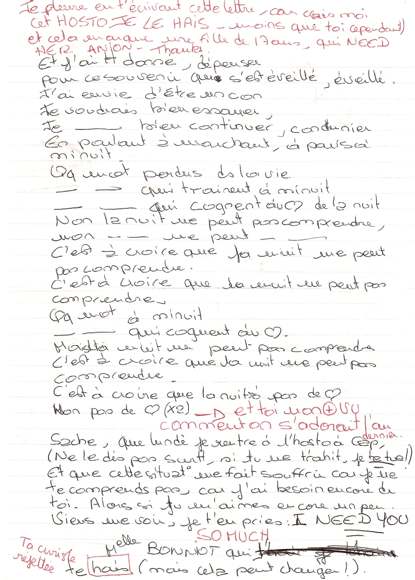 Je pleure en t'écrivant cette lettre, car crois moi
cet HOSTO JE LE HAIS - moins que toi cependant)
et cela manque une fille de 17ans, qui NEED
HER - Thanks.
Et j'ai donné, dépenser
pour ce souvenir qui s'est éveillé, éveillé.
J'ai envie d'être encor
Je voudrais bien essayer,
Je —— bien continuer, continuer
En parlant à marchant, à parisà
minuit.
Qq mot perdus ds la vie
— —— qui trainent à minuit
— —— qui cognent au ♡ de la nuit
Non la nuit ne peut pas comprendre,
non —— ne peut —— ——
C'est à croire que la nuit ne peut
pas comprendre.
C'est à croire que la nuit ne peut pas
comprendre.
Qq mot à minuit
— —— qui cognent au ♡.
nuit ne peut pas comprendre
C'est à croire que la nuit ne peut pas
comprendre.
C'est à croire que la nuit à pas de ♡
Non pas de ♡ (x2) → et toi non ⊕ UV
comment on s'adorait l'an
dernier.
Sache, que lundi je rentre à l'hosto à
(Ne le dis pas sunt, si tu me trahit, je te tue!)
Et que cette situat° me fait souffrir car je ne
te comprends pas, car j'ai besoin encore de
toi. Alors si tu m'aimes encore un peu
Viens me voir, je t'en pries. I NEED YOU
SO MUCH
Melle BONNOT qui
te hais (mais cela peut changer!).
rejettée